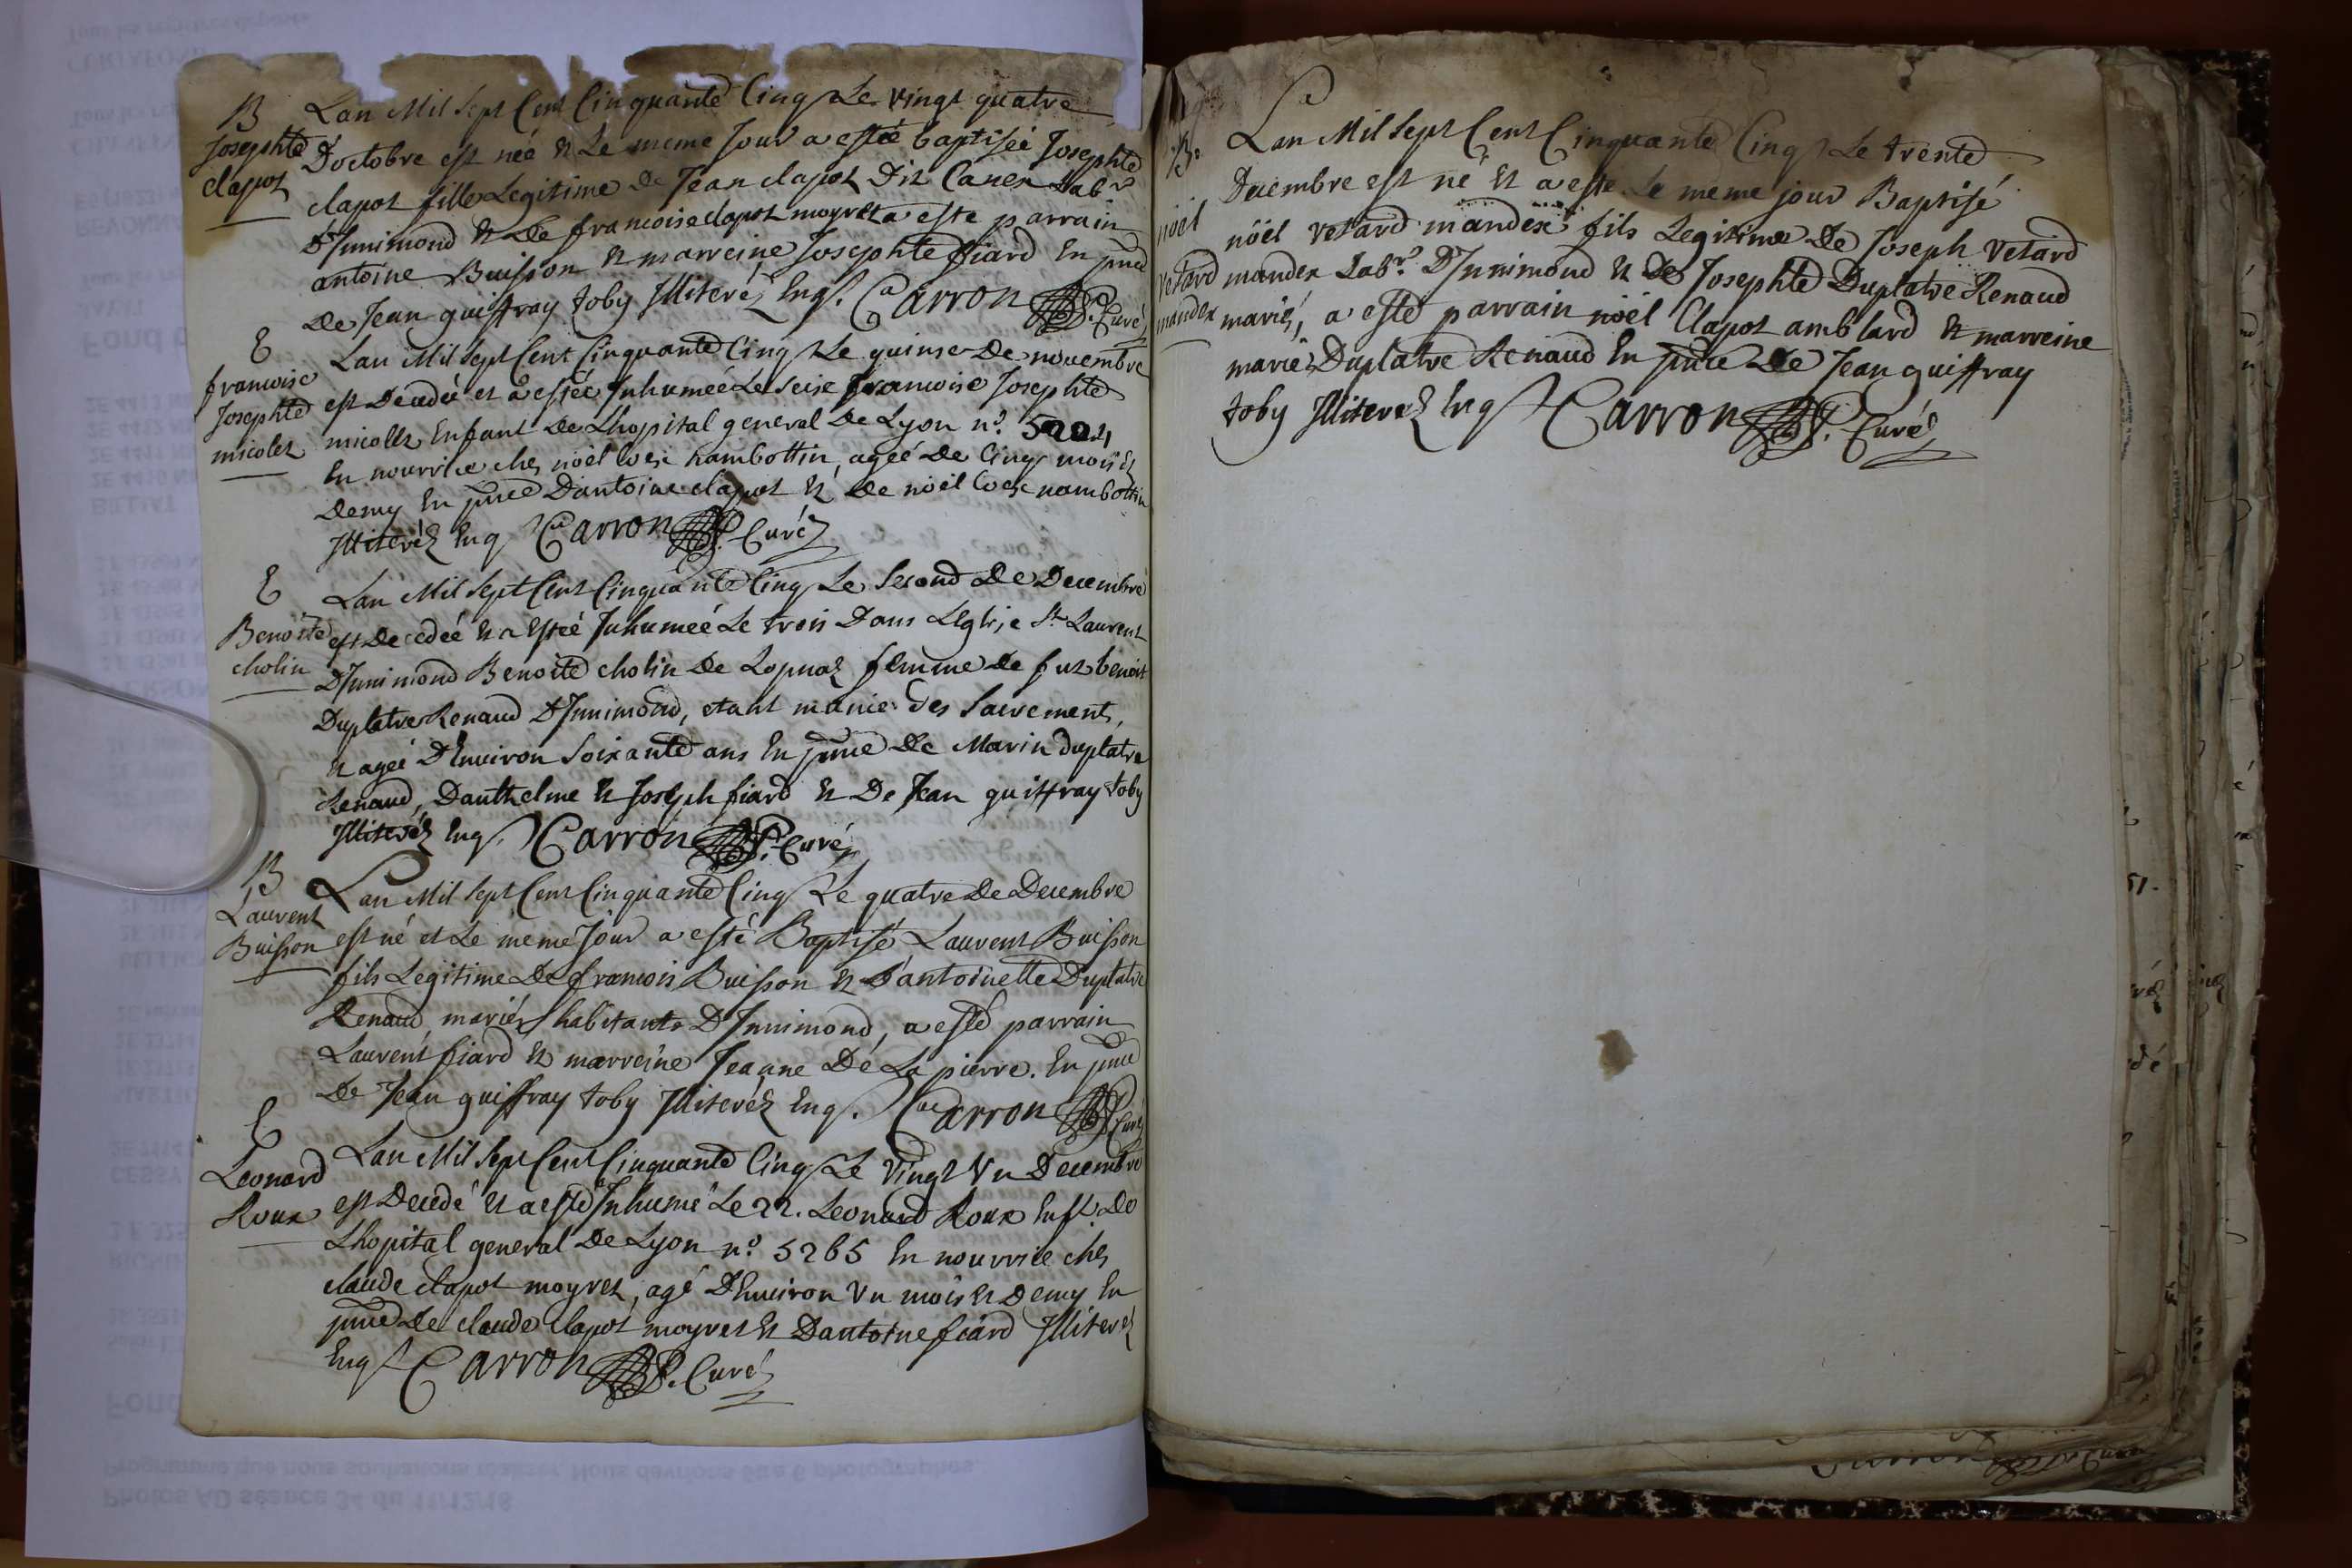 B
Josephte
clapot
Lan Mil sept Cent Cinquante Cinq Le vingt quatre
Doctobre est née et Le meme Jour a estée baptisée Josephte
clapot fille Legitime De Jean clapot Dit Canex Labr
DInnimond et De francoise clapot moyret a este parrain
antoine Buisson et marreine Josephte fiard En pnce
De Jean guiffray toby Illiteréz Enqs. Carron P. Curé
E
francoise
Josephte
micolet
Lan Mil sept Cent Cinquante Cinq Le quinse De novembre
est Decedée et a estée Inhumée Le seise francoise Josephte
micolet Enfant De Lhopital general De Lyon n.o
En nourrice ches nöel hambottin, ageé De Cinq mois et
Demy En pnce Dantoine clapot et De nöel nambottin
Illiteréz Enq Carron P. Curé
E
Benoite
cholin
Lan Mil sept Cent Cinquante Cinq Le second De Decembre
est Decedeé et a Esteé Inhumeé Le trois Dans Leglise St Laurent
DInnimond Benoite cholin De Lopnaz femme De fut benoit
Duplatre Renaud DInnimond, etant munie des sacrements,
et ageé DEnviron soixante ans En pnce De Marin Duplatre
Renaud, Danthelme et Joseph fiard et De Jean guiffray toby
Illiteréz Enqs. Carron P. Curé
B
Laurent
Buisson
Lan Mil sept Cent Cinquante Cinq Le quatre De Decembre
est né et Le meme Jour a esté Baptisé Laurent Buisson
fils Legitime De francois Buisson et Dantoinette Duplatre
Renaud, mariés habitants DInnimond, a esté parrain
Laurent fiard et marreine Jeanne De La pierre. En pnce
De Jean guiffray toby Illiteréz Enqs. Carron P. Curé
E
Leonard
Roux
Lan Mil sept Cent Cinquante Cinq Le vingt Vn Decembre
est Decedé et a esté Inhumé Le 22. Leonard Roux Enft. De
Lhopital general De Lyon n.o 5265 En nourrice ches
claude clapot moyret, agé DEnviron Vn mois et Demy En
pnce De claude clapot moyret et Dantoine fiard Illiteréz
Enqs Carron P. Curé
B.
nöel
vetard
mandex
Lan Mil sept Cent Cinquante Cinq Le trente
Decembre est né et a esté Le meme jour Baptisé
nöel vetard mandex fils Legitime De Joseph vetard
mandex Labr. DInnimond et De Josephte Duplatre Renaud
mariés, a esté parrain nöel Clapot amblard et marreine
marie Duplatre Renaud En pnce De Jean guiffray
toby Illiteréz Enqs Carron P. Curé